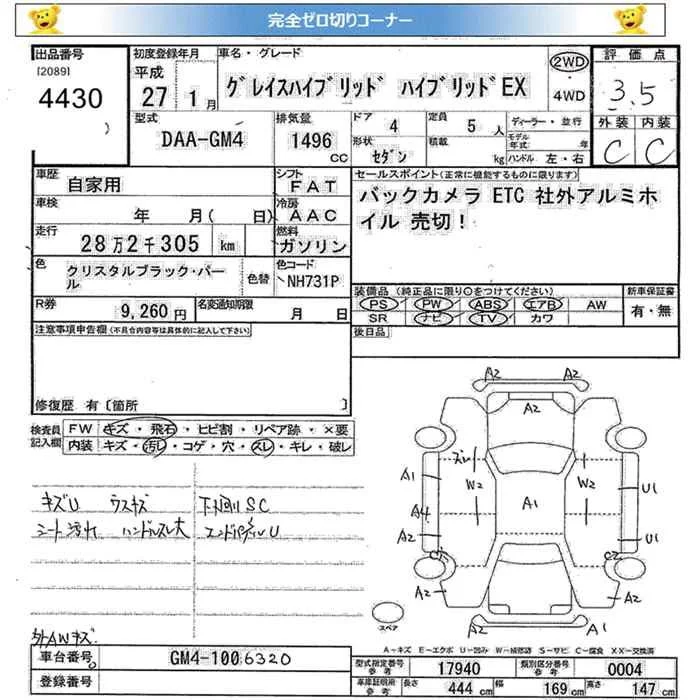 完全ゼロ切りコーナー
出品番号
[2089]
4430
初度登録年月
平成
27 1月
車名・グレード
グレイスハイブリッド ハイブリッドEX
2WD
4WD
評価点
3.5
外装 内装
C C
型式
DAA-GM4
排気量
1496
CC
ドア 4
形状 セダン
定員 5人
積載 kg
ディーラー・並行
モデル年式 年
ハンドル 左・右
車歴
自家用
シフト
FAT
車検
年 月( 日)
冷房
AAC
走行
28万2千305 km
燃料
ガソリン
色
クリスタルブラック・パール
色替
色コード
NH731P
R券
9,260円
名変通知期限
月 日
セールスポイント(正常に機能するものに限ります)
バックカメラ ETC 社外アルミホ
イル 売切!
装備品(純正品に限り○をつけてください)
PS PW ABS エアB AW
SR ナビ TV カワ
新車保証書
有・無
後日品
注意事項申告欄(不具合内容等は具体的に記入して下さい)
修復歴 有〔箇所 〕
検査員
記入欄
FW キズ・飛石・ヒビ割・リペア跡・×要
内装 キズ・汚レ・コゲ・穴・スレ・キレ・破レ
キズU ウスキズ 下廻りSC
シート汚れ ハンドルスレ大 エンドパイプU
外AWキズ
A2 A2
A2
ズレ
W2 W2
A1
A1
U1
A4
A2
U1
C1 C2
A2 A2
A2 A1
スペア
A-キズ E-エクボ U-凹み W-補修跡 S-サビ C-腐食 XX-交換済
車台番号
GM4-1006320
登録番号
型式指定番号
参考
17940
類別区分番号
参考
0004
車庫証明用
参考
長さ 444 cm
幅 169 cm
高さ 147 cm